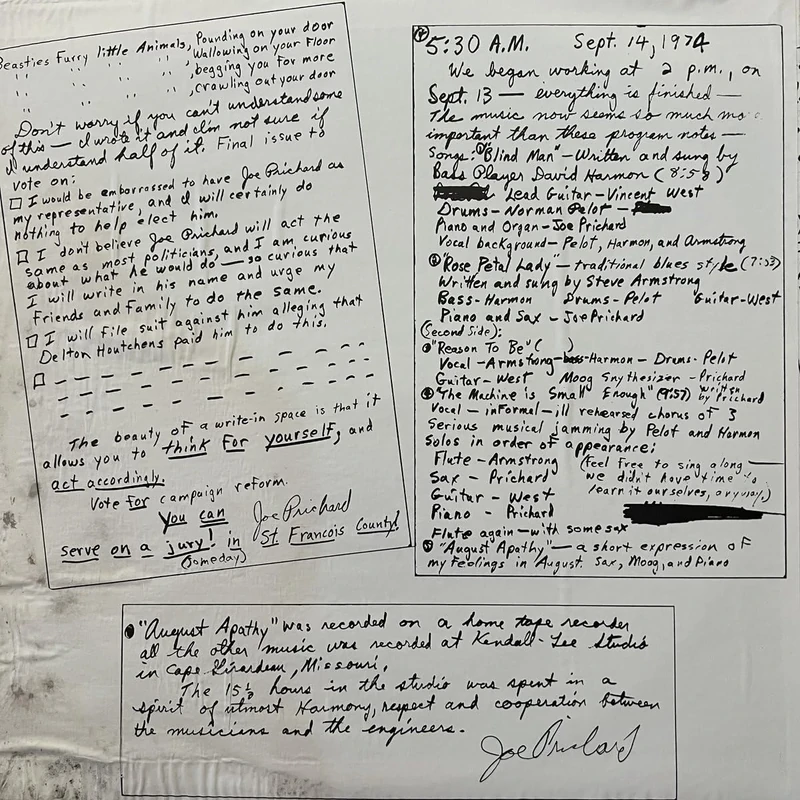 Beasties Furry little Animals, Pounding on your door
" " " " , Wallowing on your Floor
" " " " , begging you for more
" " " " , crawling out your door
Don't worry if you can't understand some
of this — I wrote it and I'm not sure if
I understand half of it. Final issue to
vote on:
□ I would be embarrossed to have Joe Prichard as
my representative, and I will certainly do
nothing to help elect him.
□ I don't believe Joe Prichard will act the
same as most politicians, and I am curious
about what he would do — so curious that
I will write in his name and urge my
Friends and Family to do the same.
□ I will File suit against him alleging that
Delton Houtchens paid him to do this.
□ — — — — — — — — —
— — — — — — — — —
— — — — — — — — —
The beauty of a write-in space is that it
allows you to think For yourself, and
act accordingly.
Vote for campaign reform.
You can Joe Prichard
serve on a jury! in St Francois County!
(someday)
5:30 A.M. Sept. 14, 1974
We began working at 2 p.m., on
Sept. 13 — everything is finished —
The music now seems so much
important than these program notes —
Songs: ① "Blind Man" — Written and sung by
Bass Player David Harmon (8:58)
Lead Guitar — Vincent West
Drums — Norman Pelot —
Piano and Organ — Joe Prichard
Vocal background — Pelot, Harmon, and Armstrong
② "Rose Petal Lady" — traditional blues style (7:33)
Written and sung by Steve Armstrong
Bass — Harmon Drums — Pelot Guitar — West
Piano and Sax — Joe Prichard
(Second Side):
"Reason To Be" ( )
Vocal — Armstrong — bass — Harmon — Drums — Pelot
Guitar — West Moog Snythesizer — Prichard
④ "The Machine is Small Enough" (9:57) written by Prichard
Vocal — inFormal — ill rehearsed chorus of 3
Serious musical jamming by Pelot and Harmon
Solos in order of appearance:
Flute — Armstrong (feel free to sing along —
Sax — Prichard we didn't have time to
Guitar — West learn it ourselves, anyway.)
Piano — Prichard
Flute again — with some sax
⑤ "August Apathy" — a short expression of
my feelings in August. Sax, Moog, and Piano
"August Apathy" was recorded on a home tape recorder
all the other music was recorded at Kendall-Lee Studio
in Cape Girardeau, Missouri.
The 15½ hours in the studio was spent in a
spirit of utmost Harmony, respect and cooperation between
the musicians and the engineers.
Joe Prichard